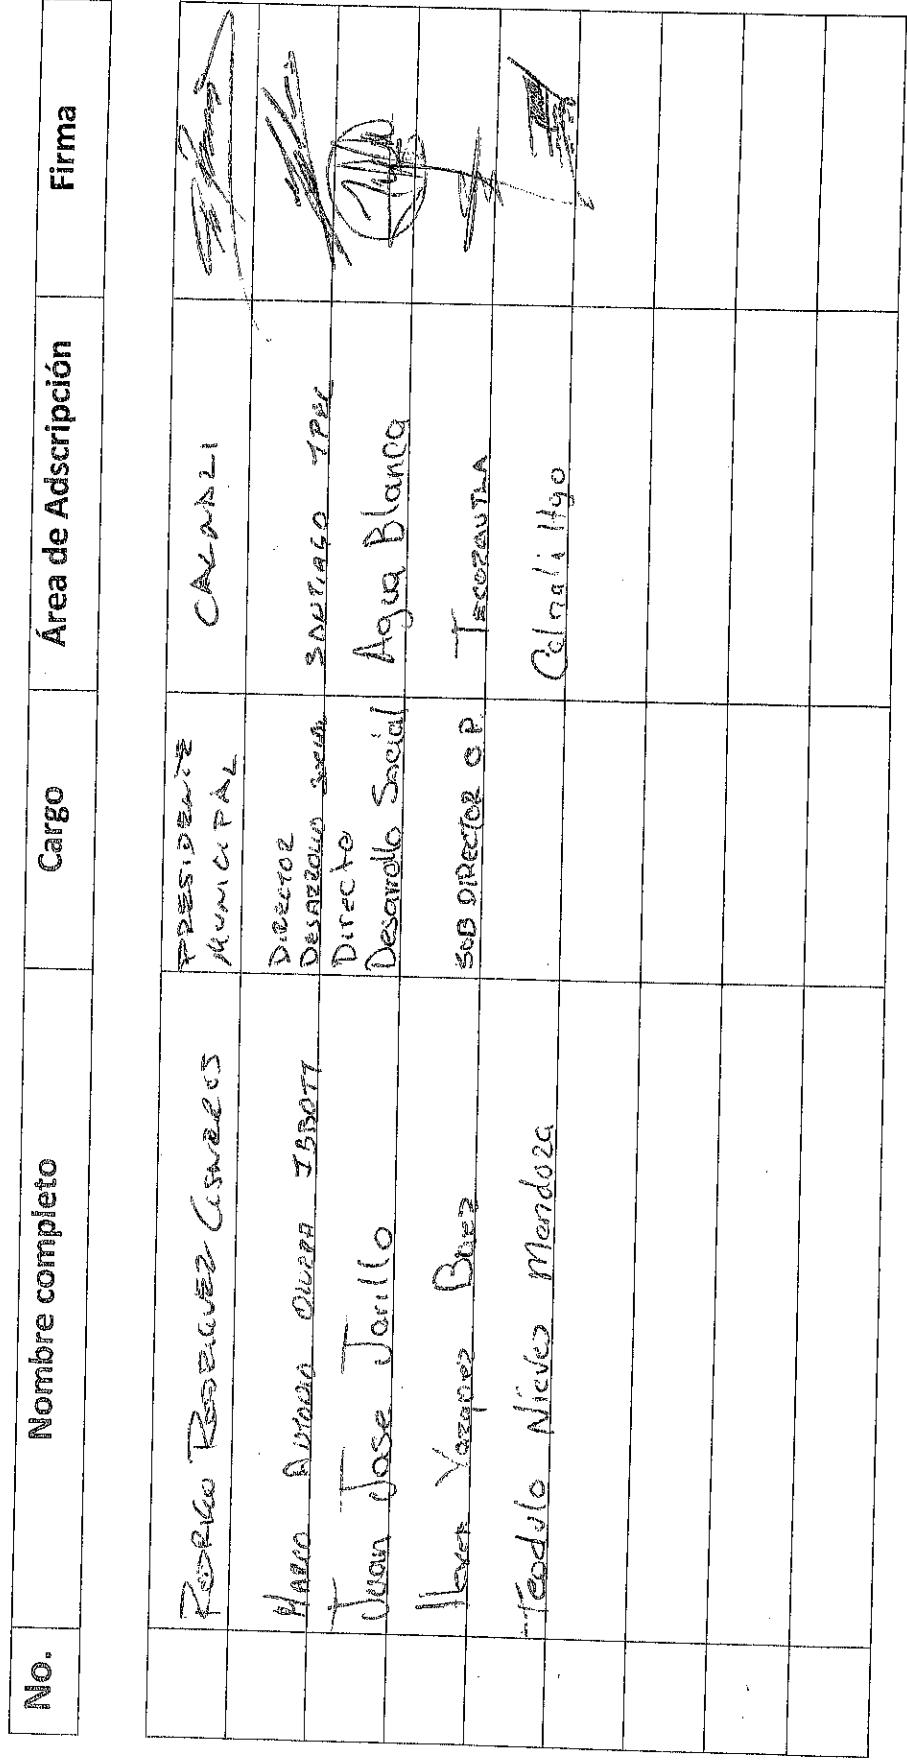 No. Nombre completo Cargo Área de Adscripción Firma
RODRIGO RODRIGUEZ CISNEROS PRESIDENTE MUNICIPAL CALNALI
MARCO ANTONIO OLVERA IBBOTT DIRECTOR DESARROLLO SOCIAL SANTIAGO
Juan Jose Jarillo Directo Desarrollo Social Agua Blanca
Vazquez Baez SUB DIRECTOR O.P. TECOZAUTLA
Teodulo Nieves Mendoza Calnali Hgo